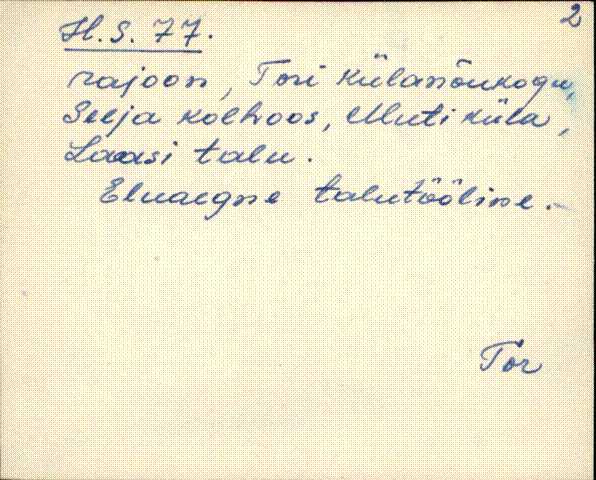 2
H. S. 77.
rajoon, Tori külanõukogu,
Selja kolhoos, Muti küla,
Laasi talu.
Eluaegne talutööline.
Tor